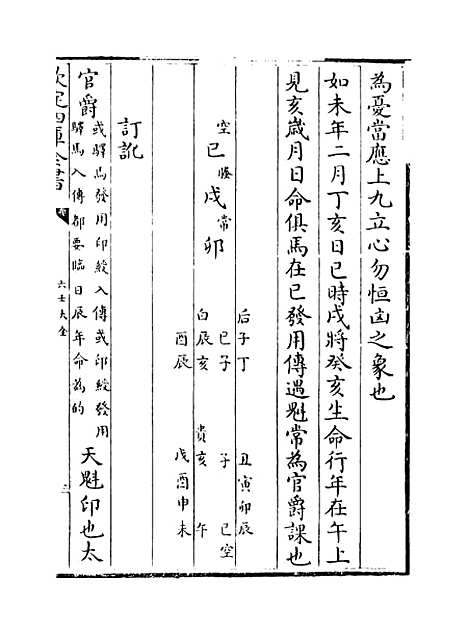 為憂當應上九立心勿恒凶之象也
如未年二月丁亥日巳時戌將癸亥生命行年在午上
見亥歲月日命俱馬在巳發用傳遇魁常為官爵課也
后子丁 丑寅卯辰
空巳 螣戌 常卯 巳子 子 巳空
白辰亥 貴亥 午
酉辰 戌酉申未
訂訛
官爵 或驛馬發用印綬入傳或印綬發用
驛馬入傳都要臨日辰年命為的 天魁印也太
欽定四庫全書 六壬大全